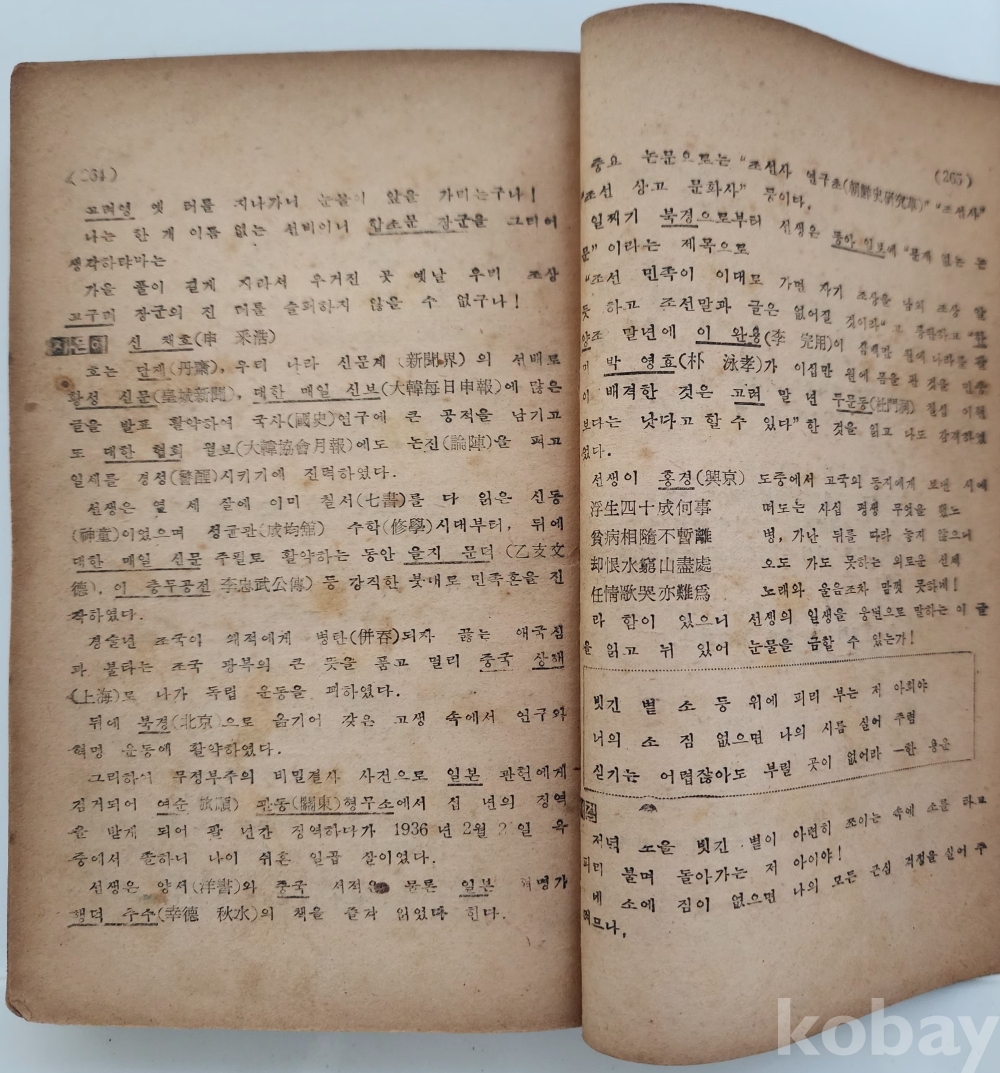 (264)
고려영 옛 터를 지나가니 눈물이 앞을 가리는구나!
나는 한 개 이름 없는 선비이니 합소문 장군을 그리어
생각하랴마는
가을 풀이 길게 자라서 우거진 곳 옛날 우리 조상
고구려 장군의 진 터를 슬퍼하지 않을 수 없구나!
지은이 신 채호(申 采浩)
호는 단제(丹齋), 우리 나라 신문계(新聞界)의 선배로
황성 신문(皇城新聞), 대한 매일 신보(大韓每日申報)에 많은
글을 발표 활약하여 국사(國史)연구에 큰 공적을 남기고
또 대한 협회 월보(大韓協會月報)에도 논진(論陣)을 펴고
일세를 경성(警醒)시키기에 진력하였다.
선생은 열 세 살에 이미 칠서(七書)를 다 읽은 신동
(神童)이었으며 성균관(成均舘) 수학(修學)시대부터, 뒤에
대한 매일 신문 주필로 활약하는 동안 을지 문덕(乙支文
德), 이 충무공전 李忠武公傳) 등 강직한 붓대로 민족혼을 진
작하였다.
경술년 조국이 왜적에게 병탄(併呑)되자 끓는 애국심
과 불타는 조국 광복의 큰 뜻을 품고 멀리 중국 상해
(上海)로 나가 독립 운동을 꾀하였다.
뒤에 북경(北京)으로 옮기어 갖은 고생 속에서 연구와
혁명 운동에 활약하였다.
그리하여 무정부주의 비밀결사 사건으로 일본 관헌에게
검거되어 여순 旅順) 관동(關東)형무소에서 십 년의 징역
을 받게 되어 팔 년간 징역하다가 1936년 2월 2일 옥
중에서 졸하니 나이 쉬흔 일곱 살이었다.
선생은 양서(洋書)와 중국 서적은 물론 일본 혁명가
행덕 추수(幸德 秋水)의 책을 즐겨 읽었다 한다.
(265)
중요 논문으로는 "조선사 연구초(朝鮮史硏究草)" "조선사"
"조선 상고 문화사" 등이다.
일찌기 북경으로부터 선생은 동아 일보에 "문제 없는 논
문"이라는 제목으로
"조선 민족이 이대로 가면 자기 조상을 남의 조상 알
듯 하고 조선말과 글은 없어질 것이라" 고 통탄하고 "한
양조 말년에 이 완용(李 完用)이 십백만 원에 나라를 팔
며 박 영효(朴 泳孝)가 이십만 원에 몸을 판 것을 민중
이 배격한 것은 고려 말 년 두문동(杜門洞) 칠십 이현
보다는 낫다고 할 수 있다" 한 것을 읽고 나도 감격하였
었다.
선생이 흥경(興京) 도중에서 고국의 동지에게 보낸 시에
浮生四十成何事 떠도는 사십 평생 무엇을 했노
貧病相隨不暫離 병, 가난 뒤를 따라 놓지 않으니
却恨水窮山盡處 오도 가도 못하는 외로운 신세
任情歌哭亦難爲 노래와 울음조차 맘껏 못하레!
라 함이 있으니 선생의 일생을 웅변으로 말하는 이 글
을 읽고 뉘 있어 눈물을 금할 수 있는가!
빗긴 볕 소 등 위에 피리 부는 저 아희야
너의 소 짐 없으면 나의 시름 실어 주렴
싣기는 어렵잖아도 부릴 곳이 없어라 —한 용운
저녁 노을 빗긴 볕이 아련히 쪼이는 속에 소를 타고
피리 불며 돌아가는 저 아이야!
네 소에 짐이 없으면 나의 모든 근심 걱정을 실어 주
려므나,
kobay